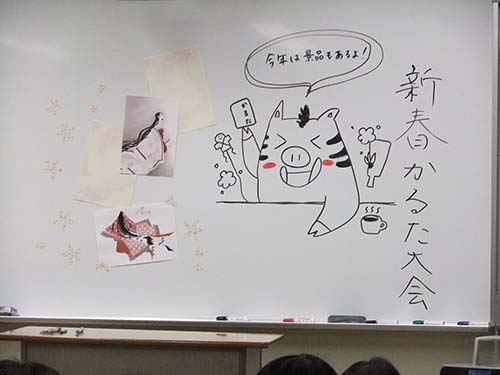 新春かるた大会
今年は景品もあるよ!
かるた